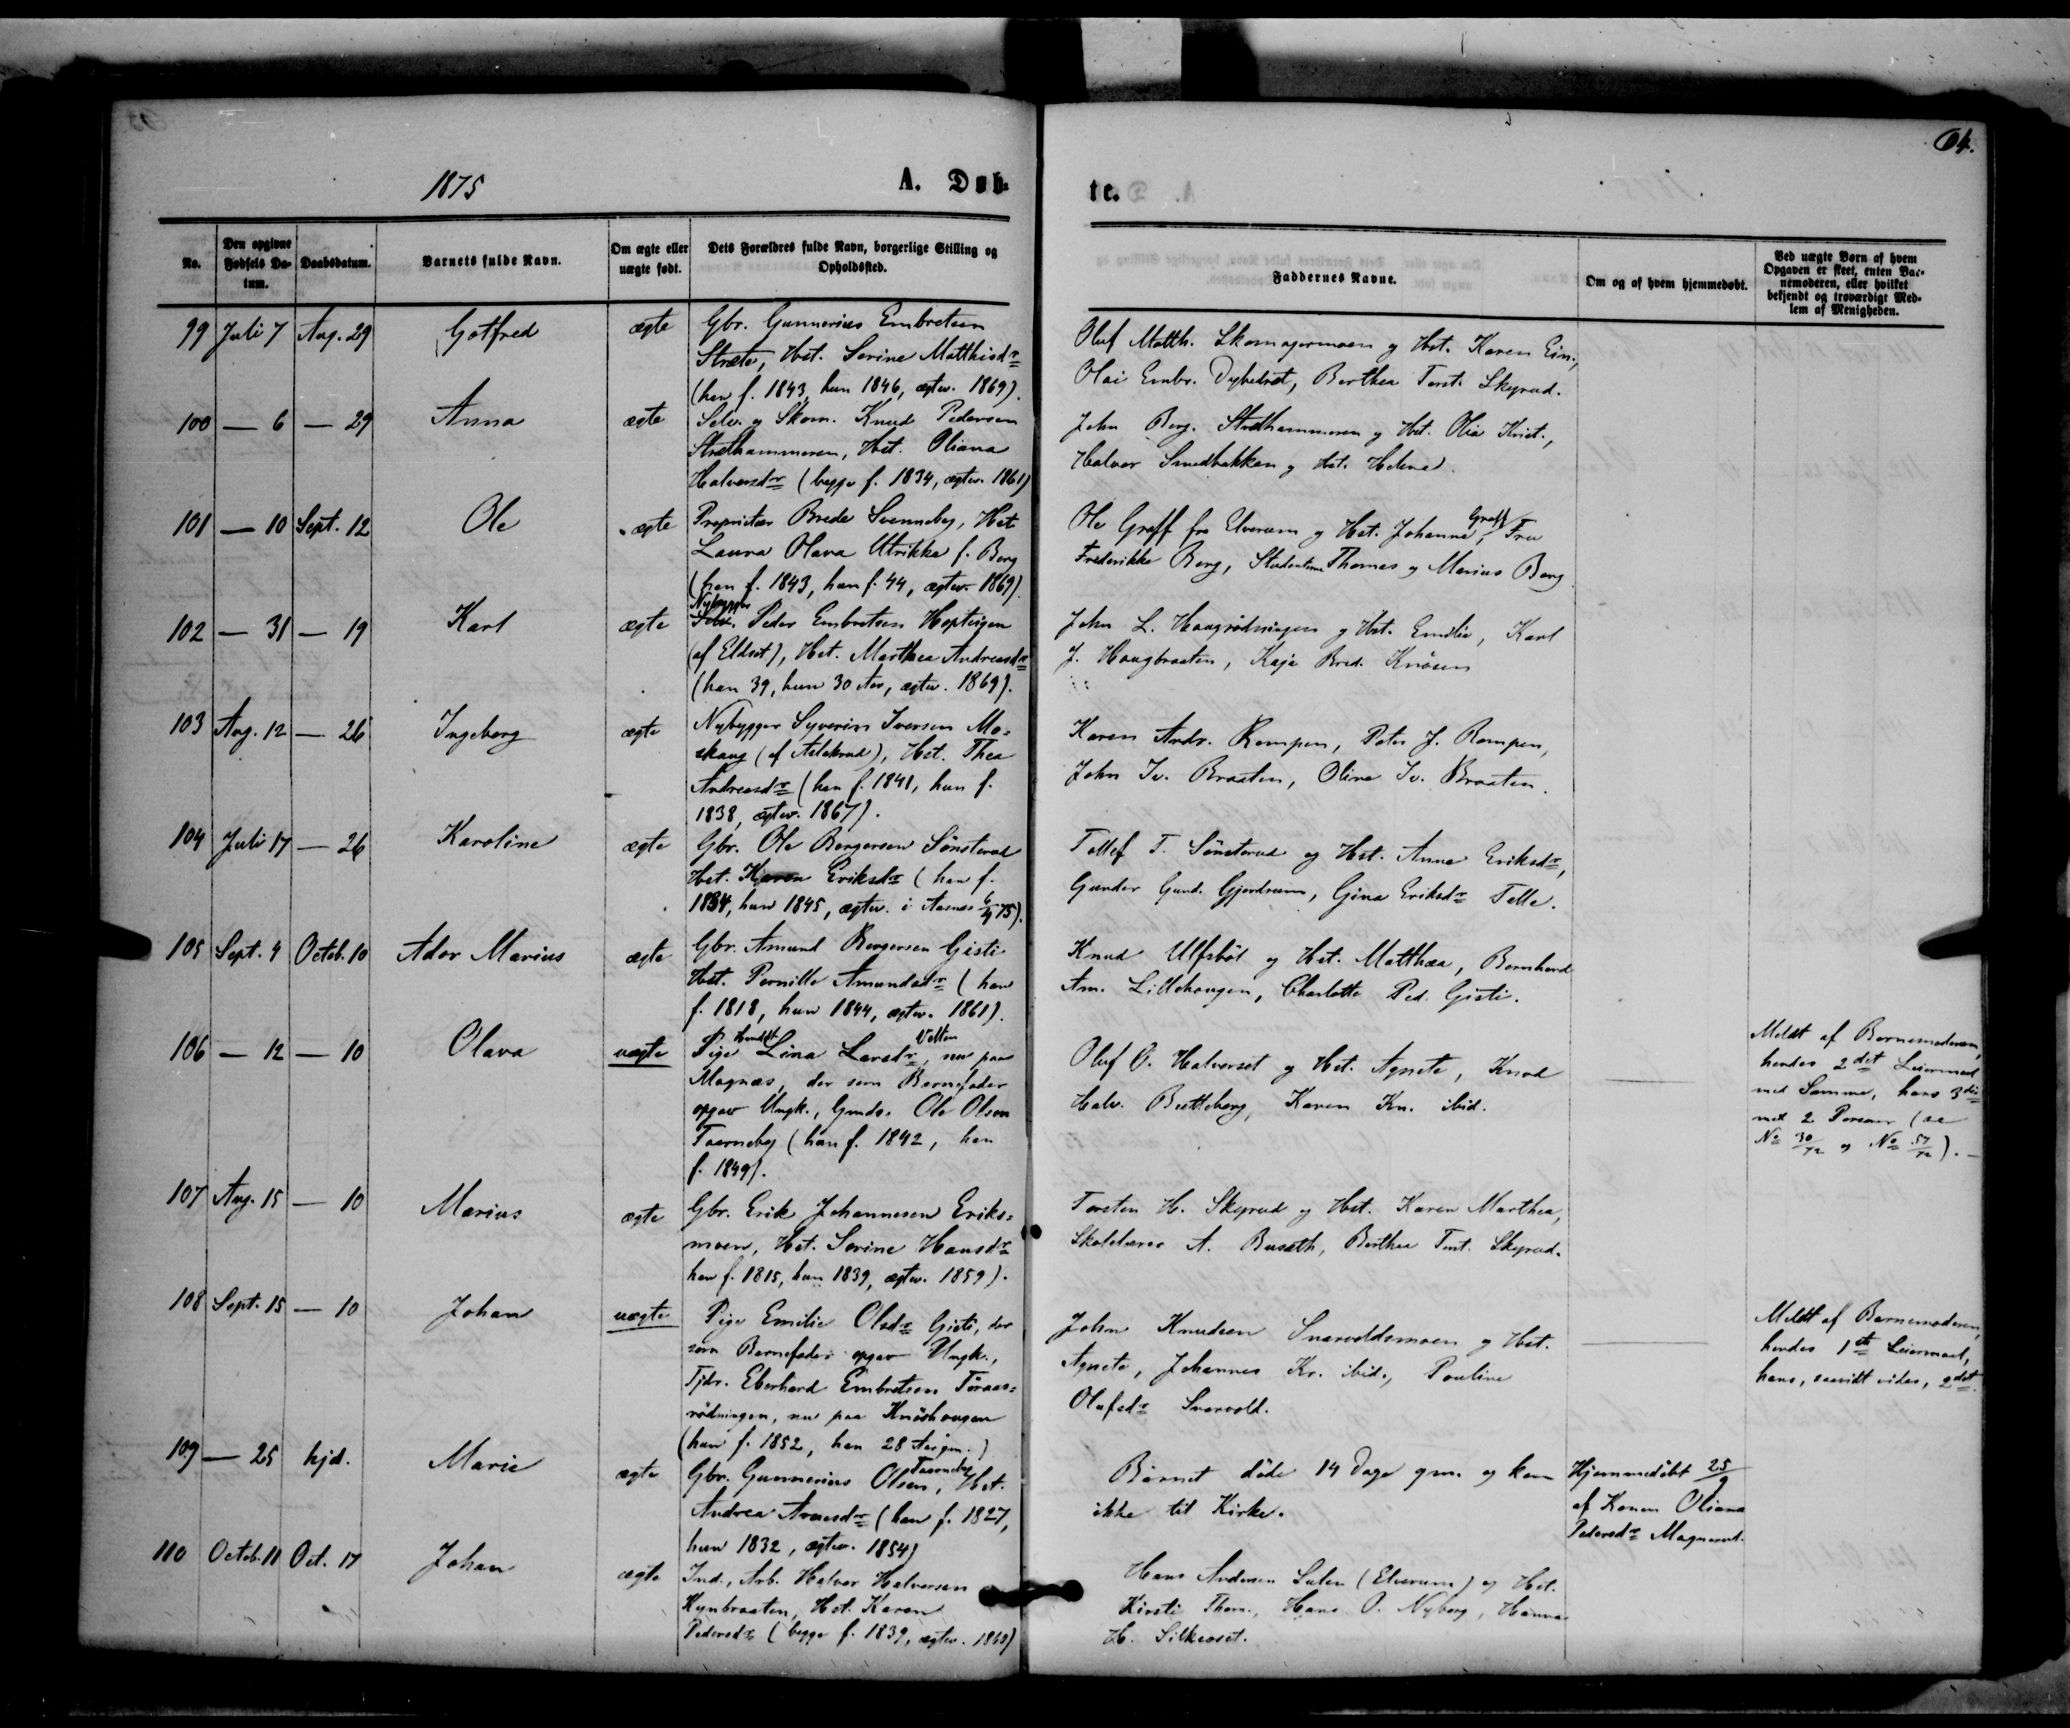 1875
A. Døb-
te.
64.
No.
Den opgivne Fødsels Da-
tum.
Daabsdatum.
Barnets fulde Navn.
Om ægte eller
uægte født.
Dets Forældres fulde Navn, borgerlige Stilling og
Opholdssted.
Faddernes Navne.
Om og af hvem hjemmedøbt.
Ved uægte Børn af hvem
Opgaven er skeet, enten Bar-
nemoderen, eller hvilket
bekjendt og troværdigt Med-
lem af Menigheden.
99 Juli 7 Aug. 29 Gotfred ægte
Gbr. Gunnerius Embretsen
Stræte, Hst. Serine Matthisdr
(han f. 1843, hun 1846, ægtev. 1869).
Oluf Matth. Skomagermoen og Hst. Karen Ein.,
Olai Embr. Dybedræt, Berthea Torst. Skyrud.
100 — 6 — 29 Anna ægte
Selv. og Skom. Knud Pedersen
Strætkammeren, Hst. Oliana
Halvorsdr (begge f. 1834, ægtev. 1861)
John Berg. Strætkammeren og Hst. Olia Krist.,
Halvor Smedbakken og Hst. Helene.
101 — 10 Sept. 12 Ole ægte
Proprietær Brede Svenneby, Hst.
Laura Olava Ulrikke f. Berg
(han f. 1843, hun f. 44, ægtev. 1869).
Ole Graff fra Elverum og Hst. Johanna Graff, Fru
Frederikke Berg, Studenterne Thomas og Marius Berg.
102 — 31 — 19 Karl ægte
Nybygger
Selv. Peder Embretsen Hepteigen
(af Eldset), Hst. Marthea Andreasdr
(han 39, hun 30 Aar, ægtev. 1869).
John L. Haugrødningen og Hst. Emilie, Karl
J. Haugbraaten, Kaja Bred. Knösen
103 Aug. 12 — 26 Ingeborg ægte
Nybygger Syverin Iversen Mo-
skaug (af Aslakrud), Hst. Thea
Andreasdr (han f. 1841, hun f.
1838, ægtev. 1867).
Karen Andr. Rampen, Peter J. Rampen,
John Iv. Braaten, Oline Iv. Braaten.
104 Juli 17 — 26 Karoline ægte
Gbr. Ole Bergersen Sönsterud
Hst. Karen Eriksdr (han f.
1834, hun 1845, ægtev. i Aasnes 6/4 75).
Tollef T. Sönsterud og Hst. Anne Eriksdr,
Gunder Gund. Gjerdrum, Gina Eriksdr Telle.
105 Sept. 4 Octob. 10 Ador Marius ægte
Gbr. Amund Bergersen Gisti
Hst. Pernille Amundsdr (han
f. 1818, hun 1844, ægtev. 1861).
Knud Ulfsböl og Hst. Matthea, Bernhard
Am. Lillehaugen, Charlotte Ped. Gisti.
106 — 12 — 10 Olava uægte
Pige Lina Larsdr Velten, nu paa
Magnæs, der som Barnefader
opgav Ungk., Grnds. Ole Olsen
Taarneby (han f. 1842, hun
f. 1849).
Oluf O. Halvorset og Hst. Agnete, Knud
Halv. Butteberg, Karen Kn. ibid.
Meldt af Barnemoderen,
hendes 2det Leiermaal
med Samme, hans 3die
med 2 Personer (se
No 30/72 og No 57/72). —
107 Aug. 15 — 10 Marius ægte
Gbr. Erik Johannesen Eriks-
moen, Hst. Serine Hansdr
han f. 1815, hun 1839, ægtev. 1859).
Torsten H. Skyrud og Hst. Karen Marthea,
Skolelærer A. Buseth, Berthea Torst. Skyrud.
108 Sept. 15 — 10 Johan uægte
Pige Emilie Olsdr Gisti, der
som Barnefader opgav Ungk.,
Tjdr. Eberhard Embretsen Toraas-
rødningen, nu paa Knöshaugen
(hun f. 1852, han 28 Aar gm.)
John Knudsen Snareoldsmoen og Hst.
Agnete, Johannes Kr. ibid., Pauline
Olufsdr Svarvold.
Meldt af Barnemoderen,
hendes 1ste Leiermaal,
hans, saavidt vides, 2det.
109 — 25 hjd. Marie ægte
Gbr. Gunnerius Olsen Taarneby, Hst.
Andrea Arnesdr (han f. 1827,
hun 1832, ægtev. 1854)
Barnet döde 14 Dage gm. og kom
ikke til Kirke.
Hjemmedöbt 25/9
af Konen Oliana
Pedersdr Magnerud.
110 Octob. 11 Oct. 17 Johan ægte
Ind., Arb. Halvor Halvorsen
Kynbraaten, Hst. Karen
Pedersdr (begge f. 1839, ægtev. 1860)
Hans Andersen Sulen (Elverum) og Hst.
Kirsti Thom., Hans O. Nyberg, Hanna
H. Silkeoset.